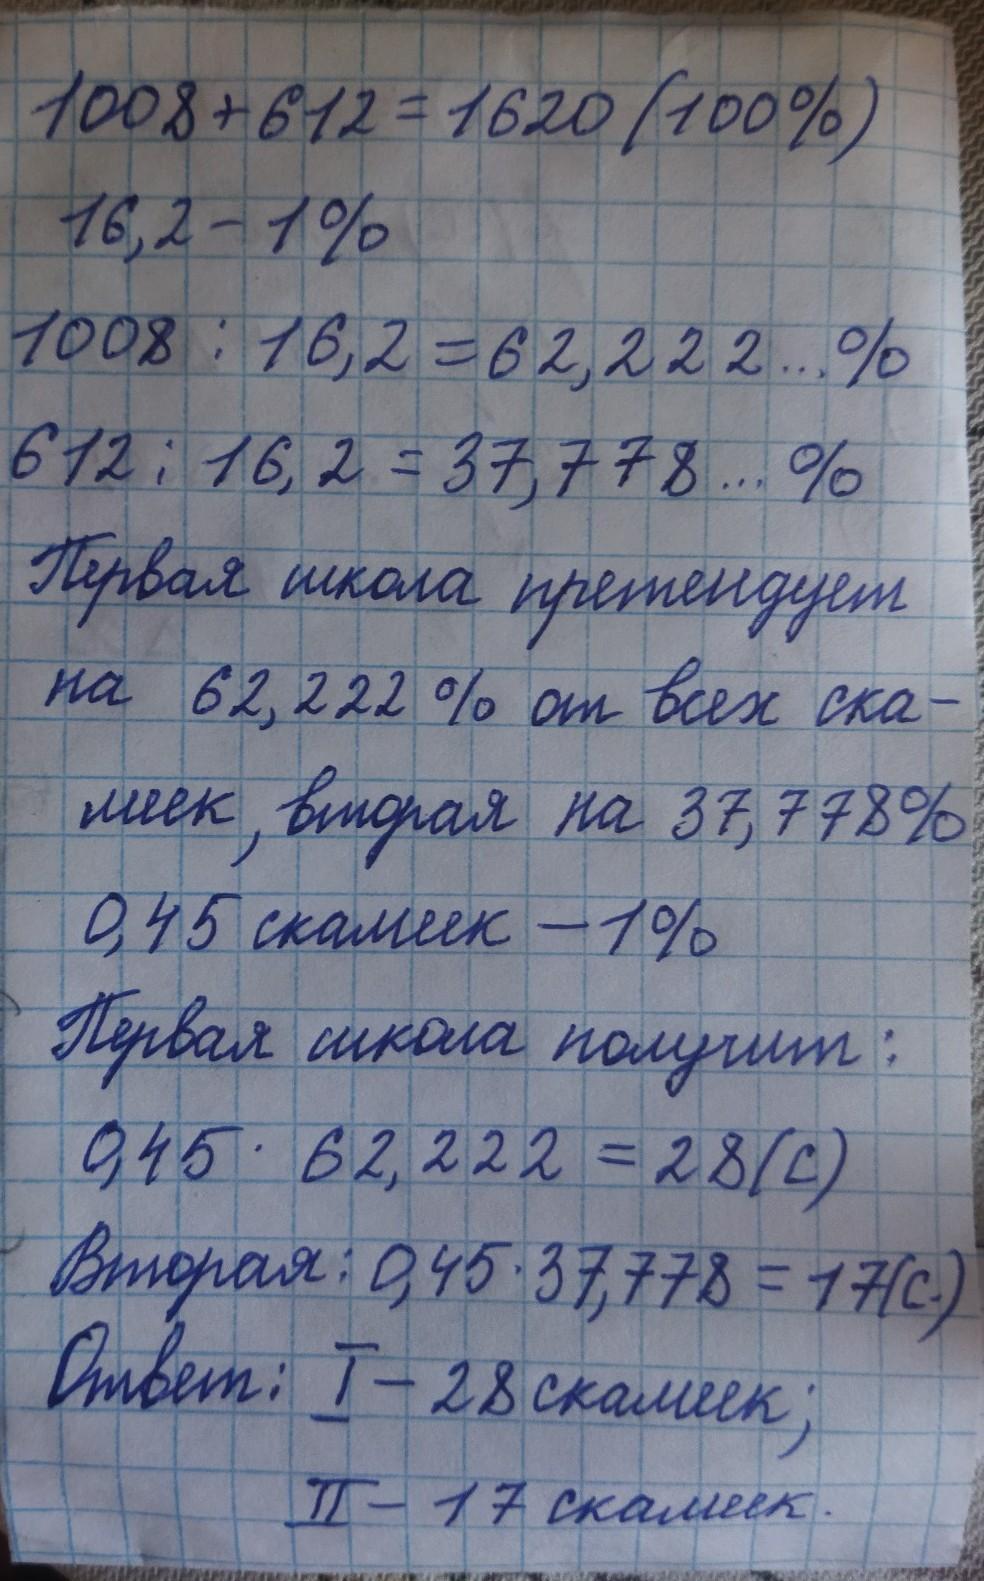 1008+612=1620 (100%)
16,2 - 1%
1008 : 16,2 = 62,222...%
612 : 16,2 = 37,778... %
Первая школа претендует
на 62,222% от всех ска-
меек, вторая на 37,778%
0,45 скамеек - 1%
Первая школа получит:
0,45 · 62,222 = 28(с)
Вторая: 0,45·37,778 = 17(с.)
Ответ: I - 28 скамеек;
II - 17 скамеек.